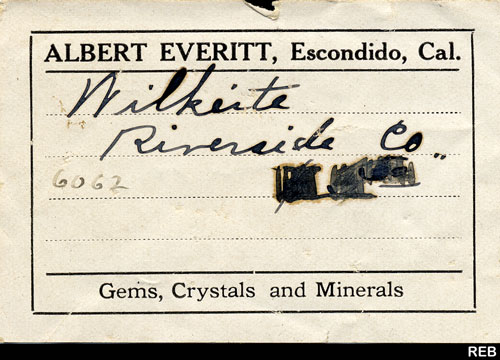 ALBERT EVERITT, Escondido, Cal.
Wilkeite
Riverside Co..
6062
Gems, Crystals and Minerals
REB